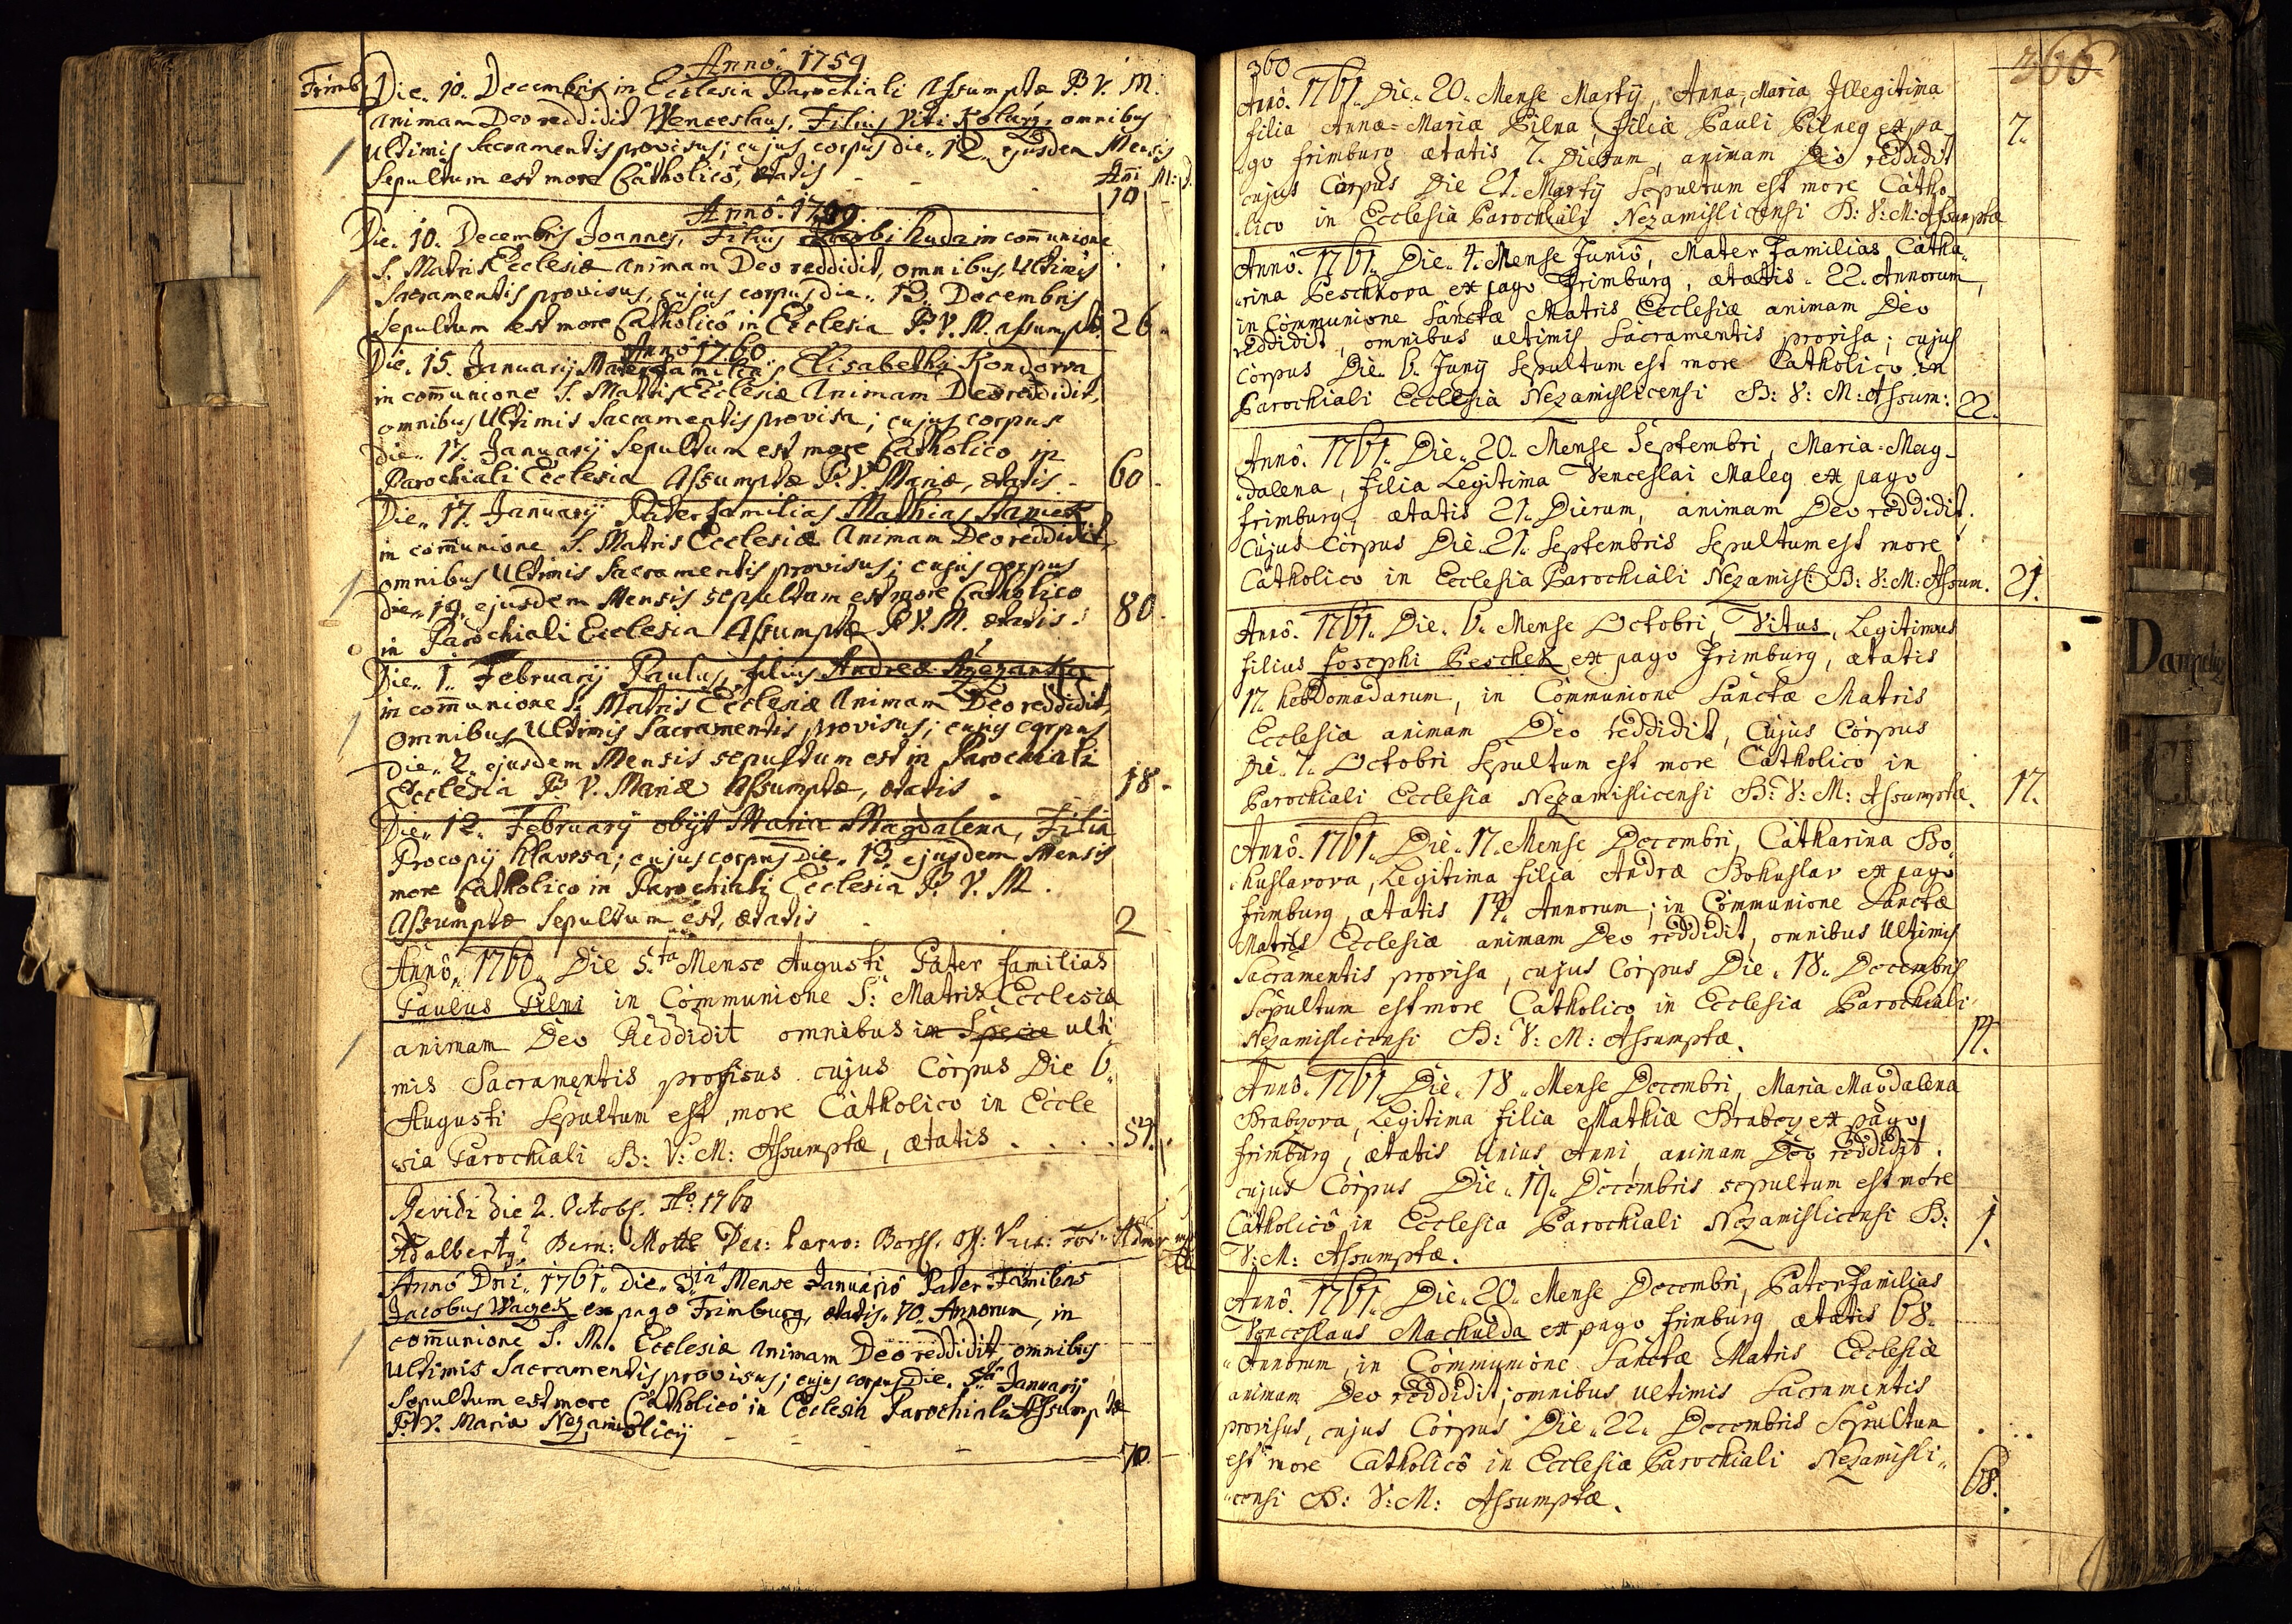 Anno 1759
Frimb.
Die. 10. Decembris in Ecclesia Parochiali Assumptæ B. V. M.
animam Deo reddidit Wenceslaus, Filius Viti Kolarz, omnibus
Ultimis Sacramentis provisus; cujus corpus die. 12. ejusdem Mensis
Sepultum est more Catholicô, ætatis
Añi M: D.
10
Annô. 1759.
Die. 10. Decembris Joannes, Filius Jacobi Kuda in com̄unione
S. Matris Ecclesiæ animam Deo reddidit, omnibus Ultimis
Sacramentis provisus, cujus corpus die. 13. Decembris
Sepultum est more Catholicô in Ecclesia B. V. M. assumptæ. 26
Anno 1760
Die. 15. Januarij Mater familias Elisabetha Kondorva
in com̄unione S. Matris Ecclesiæ Animam Deo reddidit,
omnibus Ultimis Sacramentis provisa; cujus corpus
die. 17. Januarij Sepultum est more Catholico in
Parochiali Ecclesia Assumptæ B. V. Mariæ, ætatis - 60
Die. 17. Januarij Pater familias Mathias
in com̄unione S. Matris Ecclesiæ Animam Deo reddidit,
omnibus Ultimis Sacramentis provisus; cujus corpus
die. 19. ejusdem Mensis sepultum est more Catholico
in Parochiali Ecclesia Assumptæ B. V. M. ætatis. 80
Die. 1. February Paulus, filius Andreæ
in com̄unione S. Matris Ecclesiæ Animam Deo reddidit,
Omnibus Ultimis Sacramentis provisus; cujus corpus
die. 2. ejusdem Mensis sepultum est in Parochiali
Ecclesia B. V. Mariæ Assumptæ, ætatis . 18
Die. 12. February obijt Maria Magdalena, Filia
Procopij Klavesa; cujus corpus Die. 13. ejusdem Mensis
more Catholico in Parochiali Ecclesia B. V. M.
Assumptæ Sepultum est, ætatis 2
Annô. 1760. Die 5.ta Mense Augusti Pater familias
Paulus Pilni in Communione S: Matris Ecclesiæ
animam Deo Reddidit omnibus in Specie ulti
mis Sacramentis provisus cujus Corpus Die 6.
Augusti Sepultum est more Catholico in Eccle
sia Parochiali B: V: M: Assumptæ, ætatis . . . . 57.
Revidi die 2. Octob. Ao. 1760
Adalbert9 Bern: Motte Dec:
Anno Dñi. 1761. die. 3.ia Mense Januariô Pater Familias
Jacobus Wagek ex pago Frimburg, ætatis. 70. Annorum, in
com̄unione S. M. Ecclesiæ Animam Deo reddidit, omnibus
Ultimis Sacramentis provisus; cujus corpus die. 5.ta Januarij
Sepultum est more Catholico in Ecclesia Parochiali Assumptæ
B. V. Mariæ Nezamislicij
70.
360
366
Annô. 1761. Die. 20. Mense Martÿ, Anna, Maria Illegitima
filia Annæ=Mariæ Pilna, filiæ Pauli Pilneg ex pa
go frimburg ætatis 7. Dierum, animam Deo reddidit 7.
cujus Corpus Die 21. Martÿ Sepultum est more Catho
lico in Ecclesia Parochiali Nezamislicensi B: V: M: Assumptæ
Annô. 1761. Die. 4. Mense Juniô, Mater Familias Catha„
„rina Peschkova ex pago Frimburg, ætatis. 22. Annorum,
in Communione Sanctæ Matris Ecclesiæ animam Deo
reddidit, omnibus ultimis Sacramentis provisa; cujus
Corpus Die 6. Junÿ Sepultum est more Catholico in
Parochiali Ecclesia Nezamislicensi B: V: M: Assum: 22.
Annô. 1761. Die. 20. Mense Septembri, Maria=Mag-
dalena, filia Legitima Venceslai Maleg ex pago
frimburg, ætatis 21. Dierum, animam Deo reddidit.
Cujus Corpus Die. 21. Septembris Sepultum est more
Catholico in Ecclesia Parochiali Nezamisl: B: V: M: Assum. 21.
Annô. 1761. Die. 6. Mense Octobri, Vitus, Legitimus
filius Josephi Peschek ex pago Frimburg, ætatis
17. hebdomadarum, in Communione Sanctæ Matris
Ecclesiæ animam Deo reddidit, Cujus Corpus
Die. 7. Octobri Sepultum est more Catholico in
Parochiali Ecclesia Nezamislicensi B: V: M: Assumptæ. 17.
Annô. 1761. Die. 17. Mense Decembri, Catharina Bo„
„huslavova, Legitima filia Andræ Bohuslav ex pago
frimburg, ætatis 14. Annorum; in Communione Sanctæ
Matris Ecclesiæ animam Deo reddidit, omnibus Ultimis
Sacramentis provisa, cujus Corpus Die. 18. Decembris
Sepultum est more Catholico in Ecclesia Parochiali
Nezamislicensi B: V: M: Assumptæ. 14.
Annô. 1761. Die. 18. Mense Decembri, Maria Magdalena
Brabzova, Legitima filia Mathiæ Brabcy ex pago
frimburg, ætatis Unius Anni, animam Deo reddidit.
cujus Corpus Die. 19. Decembris sepultum est more
Catholicô in Ecclesia Parochiali Nezamislicensi B: 1.
V: M: Assumptæ.
Annô. 1761. Die. 20. Mense Decembri, Pater Familias
Venceslaus Machulda ex pago frimburg ætatis 68.
Annorum, in Communione Sanctæ Matris Ecclesiæ
animam Deo reddidit; omnibus ultimis Sacramentis
provisus, cujus Corpus Die. 22. Decembris Sepultum
est more Catholicô in Ecclesia Parochiali Nezamisli„
„censi B: V: M: Assumptæ. 68.